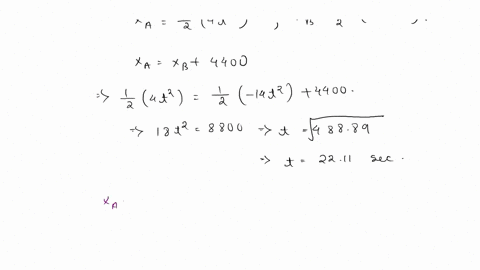 x_A = x_B + 4400
=> 1/2 (4t²) = 1/2 (-14t²) + 4400.
=> 18t² = 8800 => t = √488.89
=> t = 22.11 sec.
x_A